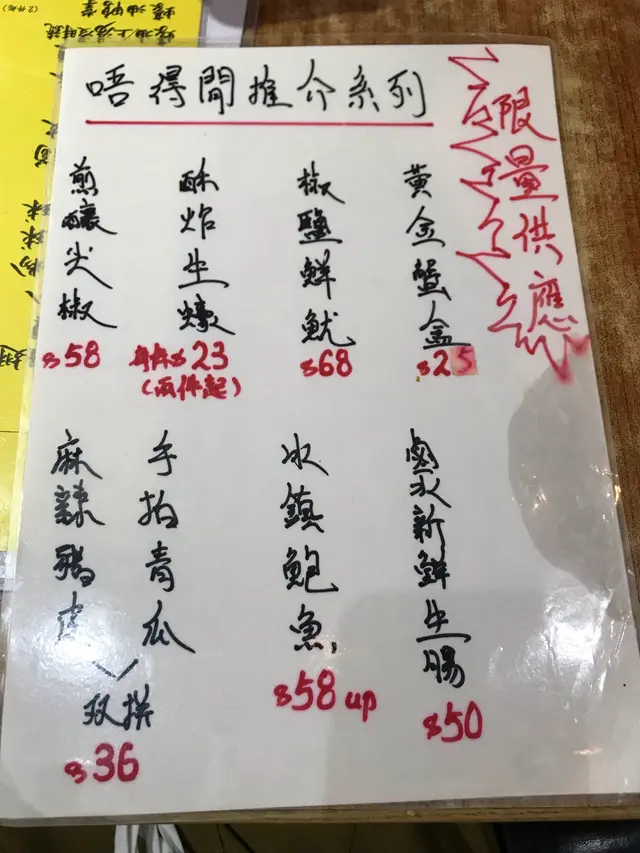 唔得閒推介系列
限量供應
黃金蟹盒
$25
椒鹽鮮魷
$68
酥炸生蠔
每件$23
(兩件起)
煎釀尖椒
$58
鹵水新鮮生腸
$50
冰鎮鮑魚
$58 up
手拍青瓜
麻辣豬皮
双拼
$36
(2件起)
蠔油鴨掌